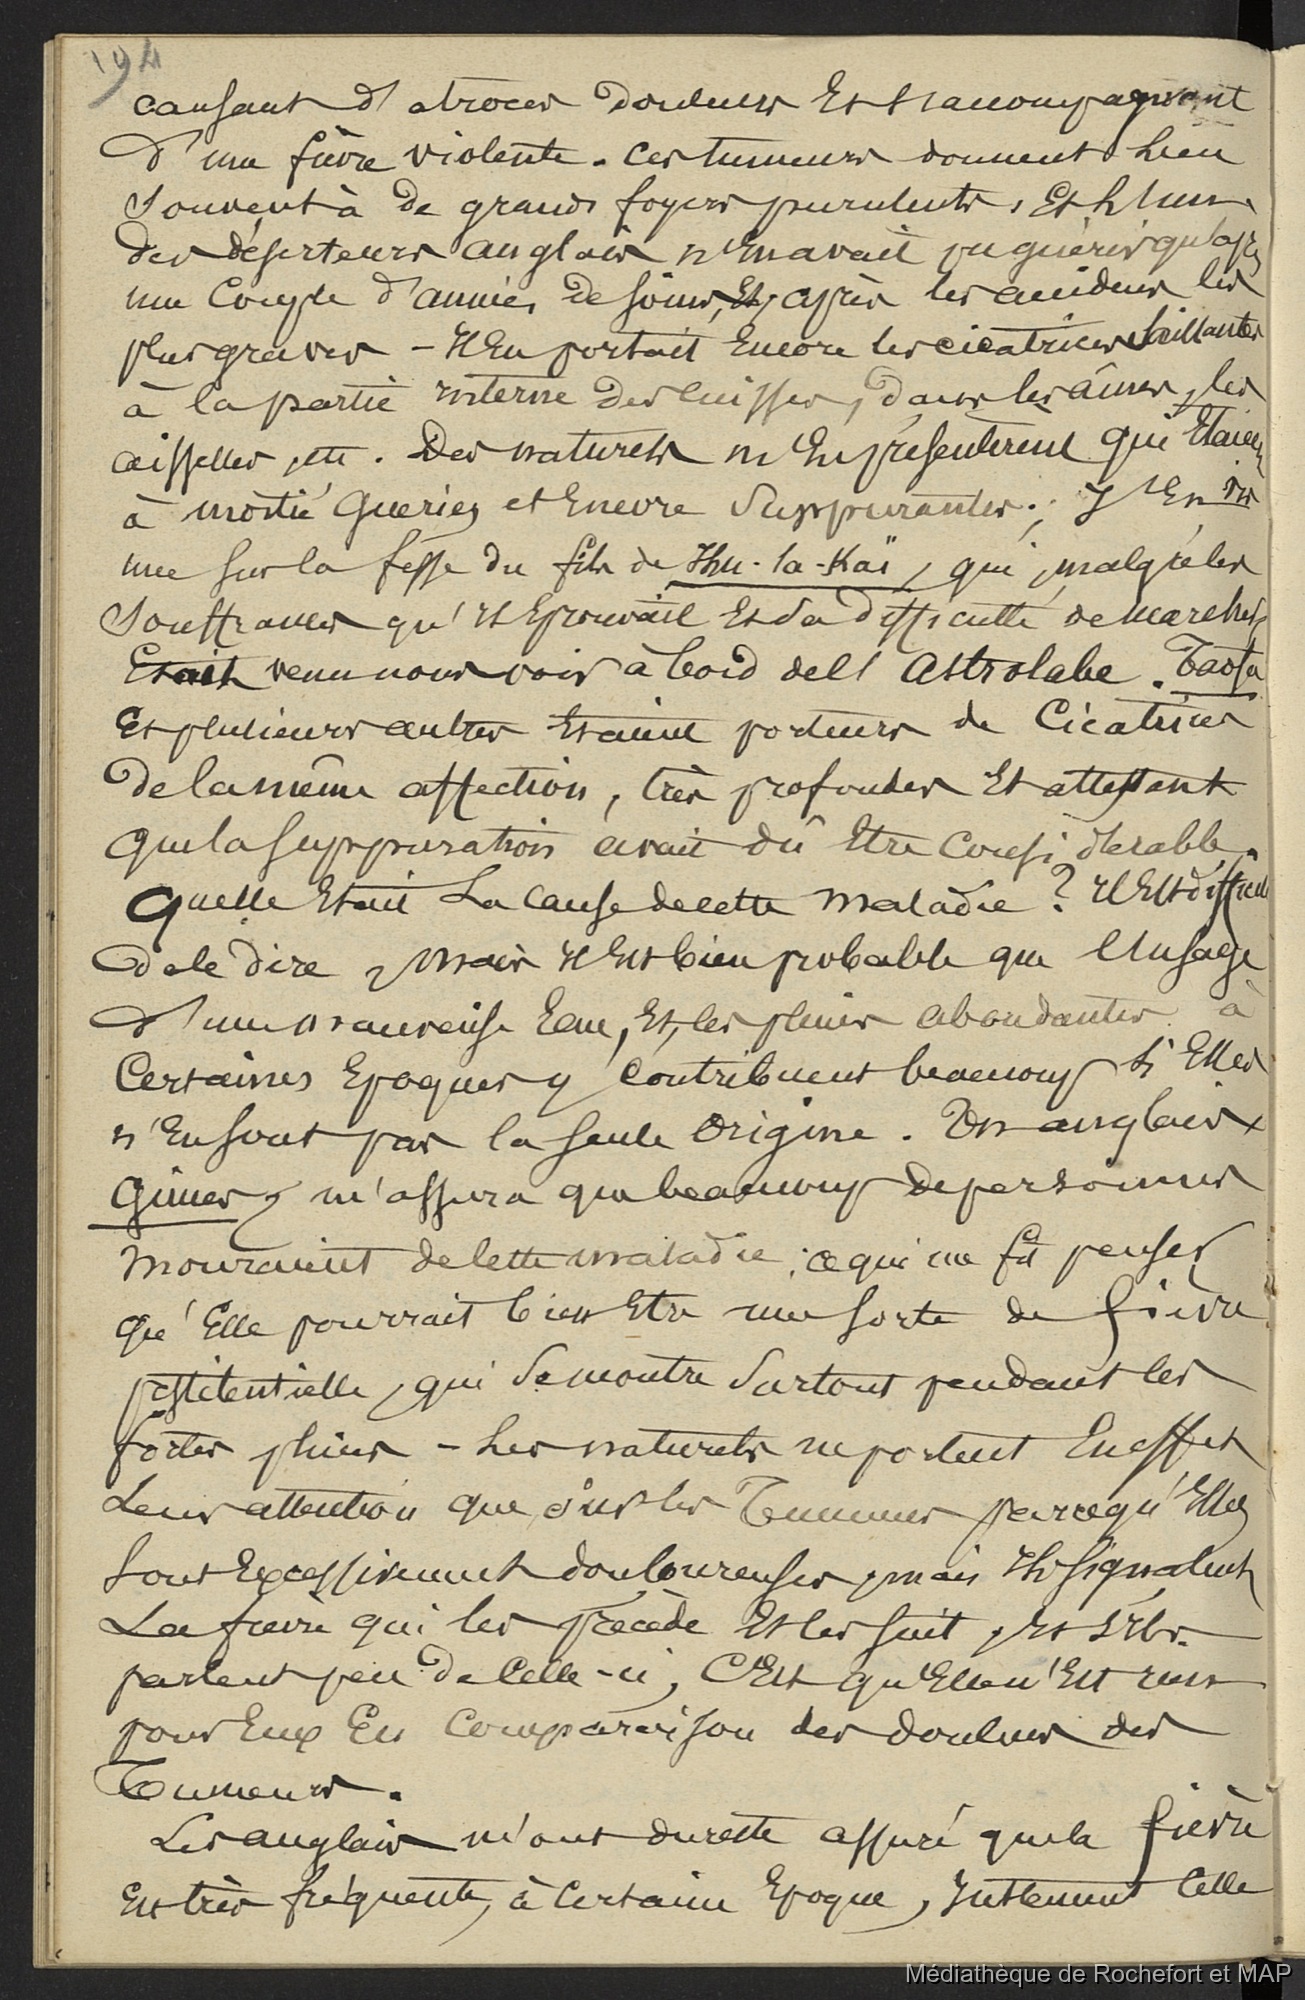 194
causant d'atroces douleurs Et s'accompagnant
d'une fièvre violente. Ces tumeurs donnent Lieu
Souvent à de grands foyers purulents, Et L'un
des déserteurs anglais n'En avait pu guérir qu'après
une couple d'années de soins, Et, après les accidens les
plus graves - Il En portait Encore les cicatrices brillantes
à la partie interne des cuisses, dans les aînes, les
aisselles, etc. Des naturels m'En présentèrent qui Etaient
à moitié Guéries et Encore Suppurantes; J'En vis
une sur la fesse du fils de Thu-la-Kaï, qui, malgré les
Souffrances qu'Il Eprouvait Et Sa difficulté de marcher,
Etait venu nous voir à bord de l'Astrolabe. Taofa
Et plusieurs autres Etaient porteurs de Cicatrices
de la même affection, très profondes Et attestant
que la Suppuration avait dû Etre Considérable.
Quelle Etait La cause de cette maladie? Il Est difficile
de le dire, mais Il Est bien probable que l'Usage
d'une mauvaise Eau, Et, les pluies abondantes à
Certaines Epoques y contribuent beaucoup Si Elles
n'En sont pas la seule Origine. Un anglais,
Gimes, m'assura que beaucoup de personnes
mouraient de cette maladie; ce qui me fit penser
qu'Elle pourrait bien Etre une sorte de fièvre
pestilentielle, qui Se montre Surtout pendant les
fortes pluies - Les naturels ne portent En effet
Leur attention que sur les Tumeurs parce qu'Elles
Sont Excessivement douloureuses, mais Ils signalent
La fièvre qui les précède Et les suit, Et s'Ils
parlent peu de Celle-ci, C'Est qu'Elle n'Est rien
pour Eux En Comparaison des douleurs des
Tumeurs.
Les anglais m'ont du reste assuré que la fièvre
Est très fréquente, à Certaine Epoque, Justement Celle
Médiathèque de Rochefort et MAP